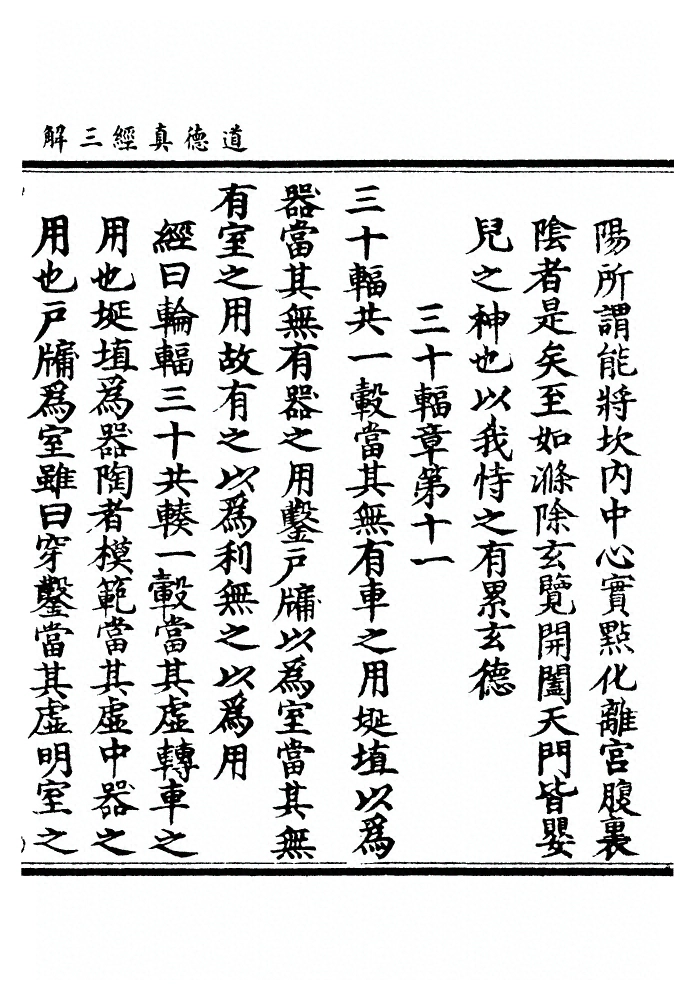 道德真經三解
陽所謂能將坎內中心實點化離宮腹裏
陰者是矣至如滌除玄覽開闔天門皆嬰
兒之神也以我恃之有累玄德
三十輻章第十一
三十輻共一轂當其無有車之用埏埴以為
器當其無有器之用鑿戶牖以為室當其無
有室之用故有之以為利無之以為用
經曰輪輻三十共輳一轂當其虛轉車之
用也埏埴為器陶者模範當其虛中器之
用也戶牖為室雖曰穿鑿當其虛明室之